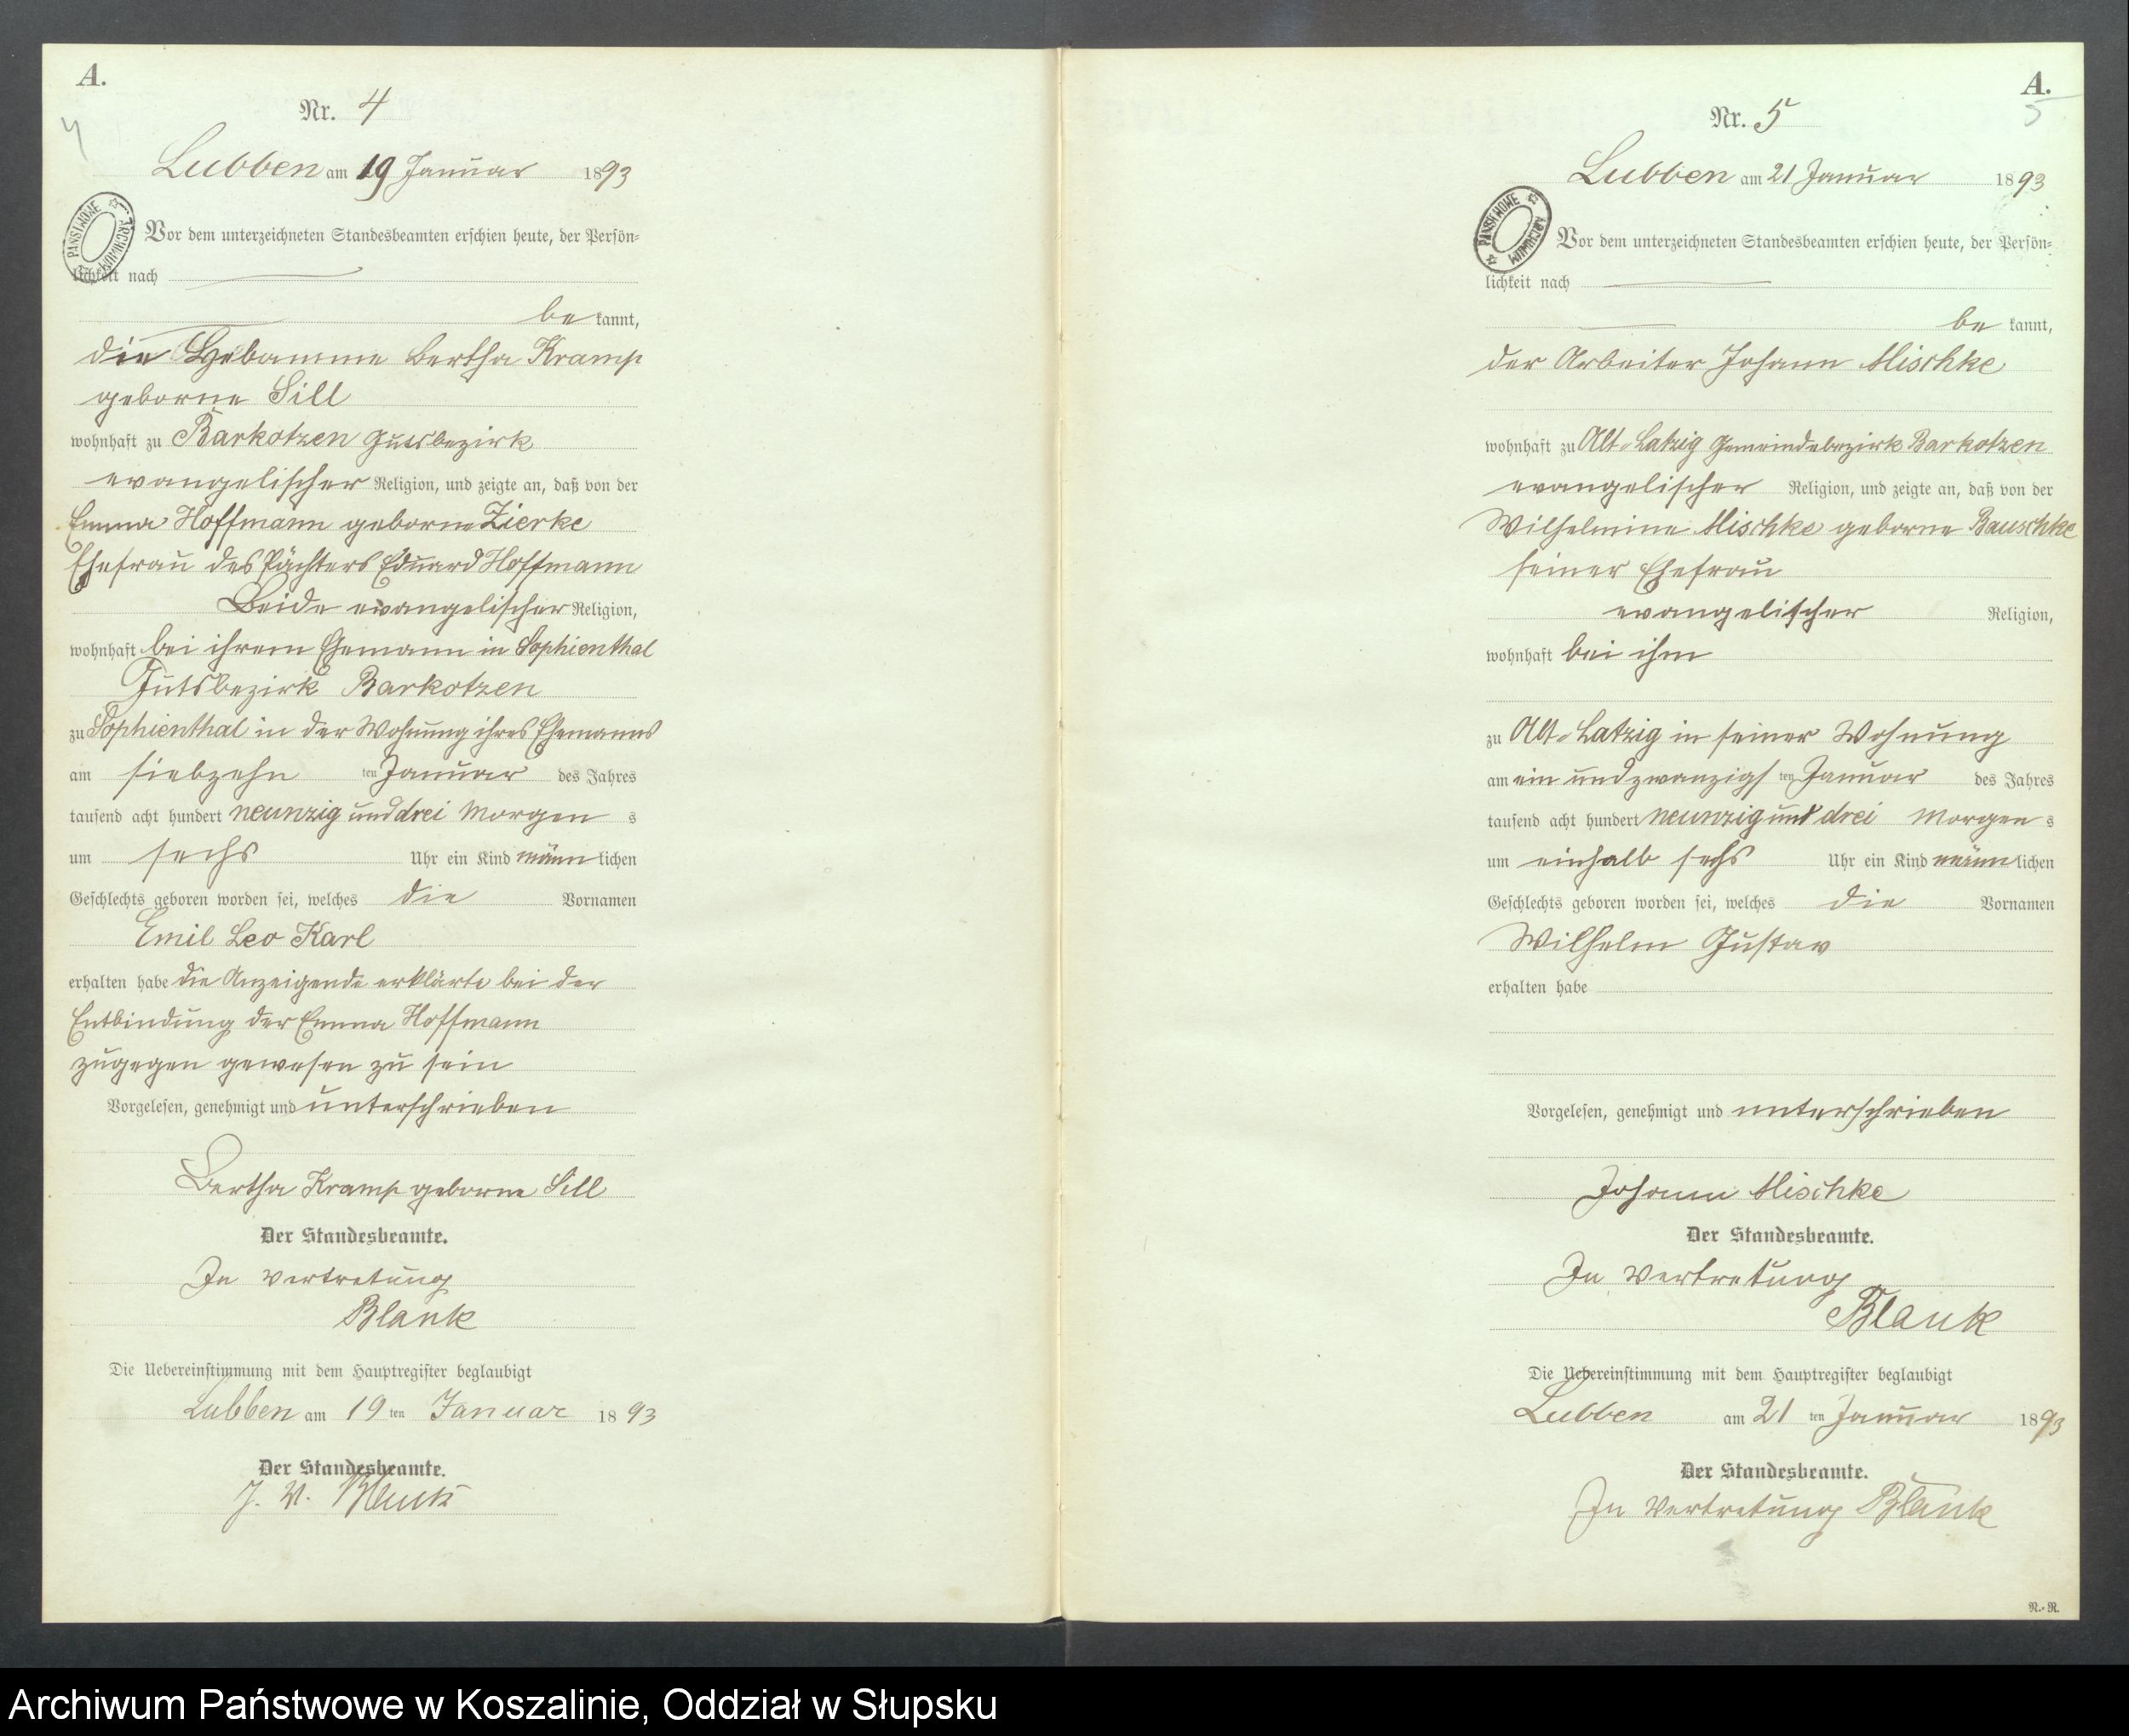 A.
4
Nr. 4
Lubben am 19 Januar 1893
PAŃSTWOWE ARCHIWUM
Vor dem unterzeichneten Standesbeamten erschien heute, der Persön=
lichkeit nach
be kannt,
die Hebamme Bertha Kramp
geborne Sill
wohnhaft zu Barkotzen Gutsbezirk
evangelischer Religion, und zeigte an, daß von der
Emma Hoffmann geborne Zierke
Ehefrau des Pächters Eduard Hoffmann
Beide evangelischer Religion,
wohnhaft bei ihrem Ehemann in Sophienthal
Gutsbezirk Barkotzen
zu Sophienthal in der Wohnung ihres Ehemanns
am siebzehn ten Januar des Jahres
tausend acht hundert neunzig und drei Morgen s
um sechs Uhr ein Kind männ lichen
Geschlechts geboren worden sei, welches die Vornamen
Emil Leo Karl
erhalten habe die Anzeigende erklärte bei der
Entbindung der Emma Hoffmann
zugegen gewesen zu sein
Vorgelesen, genehmigt und unterschrieben
Bertha Kramp geborne Sill
Der Standesbeamte.
In Vertretung
Blank
Die Uebereinstimmung mit dem Hauptregister beglaubigt
Lubben am 19 ten Januar 1893
Der Standesbeamte.
J. V. Blank
A.
5
Nr. 5
Lubben am 21 Januar 1893
PAŃSTWOWE ARCHIWUM
Vor dem unterzeichneten Standesbeamten erschien heute, der Persön=
lichkeit nach
be kannt,
der Arbeiter Johann Mischke
wohnhaft zu Alt-Latzig Gemeindebezirk Barkotzen
evangelischer Religion, und zeigte an, daß von der
Wilhelmine Mischke geborne Bauschke
seiner Ehefrau
evangelischer Religion,
wohnhaft bei ihm
zu Alt-Latzig in seiner Wohnung
am ein und zwanzigs ten Januar des Jahres
tausend acht hundert neunzig und drei Morgen s
um einhalb sechs Uhr ein Kind männ lichen
Geschlechts geboren worden sei, welches die Vornamen
Wilhelm Gustav
erhalten habe
Vorgelesen, genehmigt und unterschrieben
Johann Mischke
Der Standesbeamte.
In Vertretung
Blank
Die Uebereinstimmung mit dem Hauptregister beglaubigt
Lubben am 21 ten Januar 1893
Der Standesbeamte.
In Vertretung Blank
N.-R.
Archiwum Państwowe w Koszalinie, Oddział w Słupsku